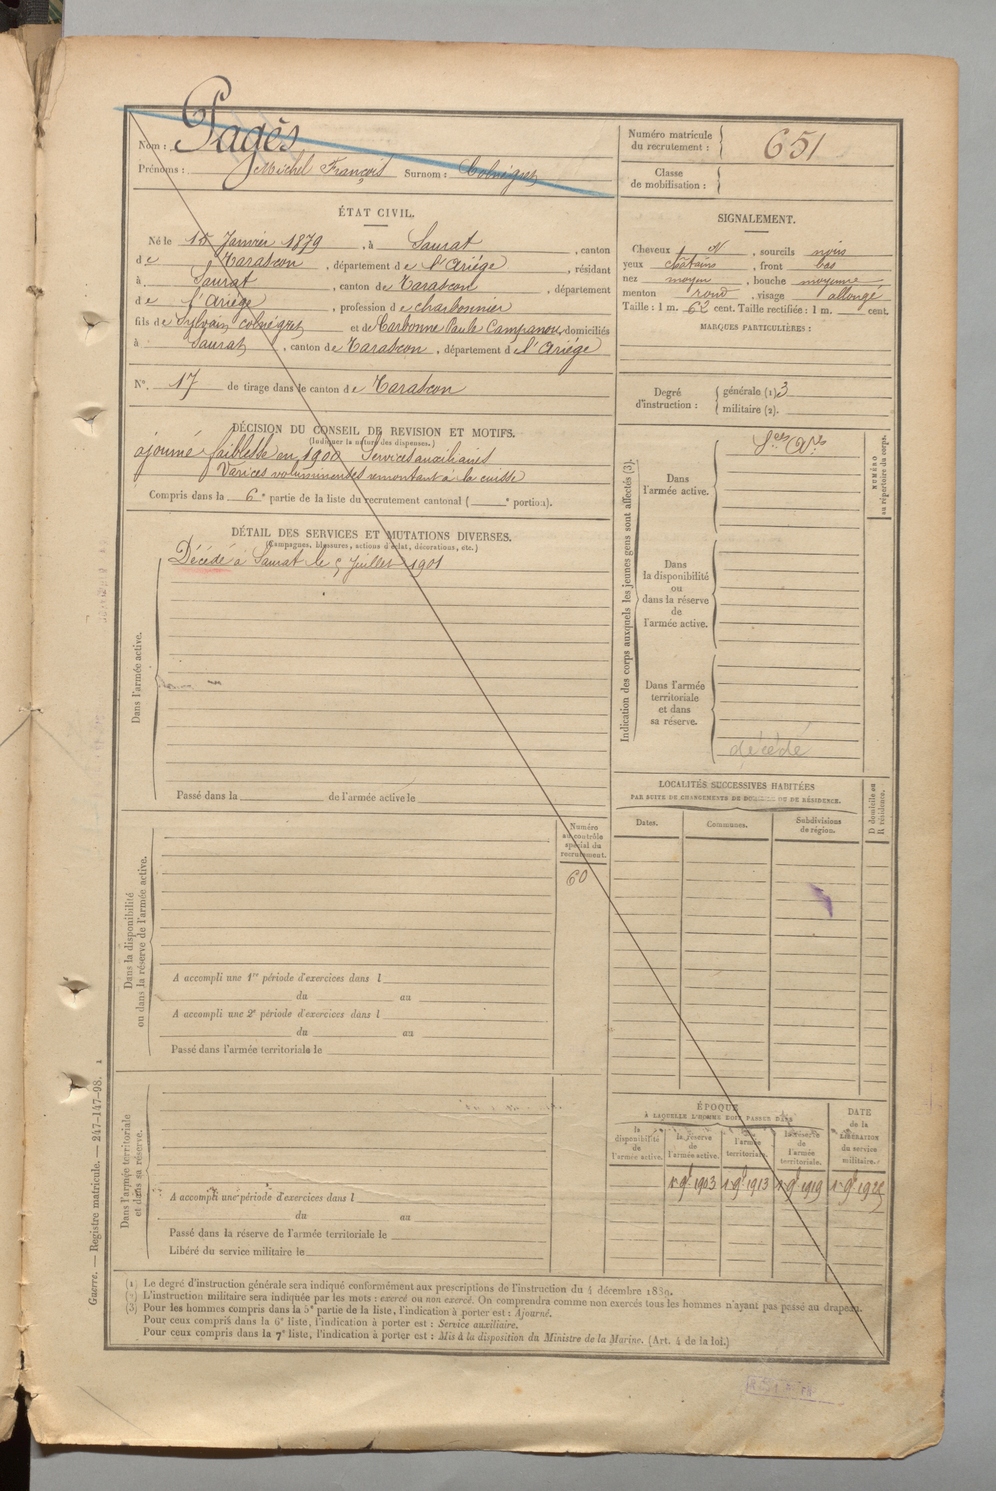 Nom : Pagès
Prénoms : Michel François Surnom : Colnégres
Numéro matricule du recrutement : 651
Classe de mobilisation :
ÉTAT CIVIL.
Né le 15 Janvier 1879, à Saurat, canton
de Tarascon, département de l'Ariège, résidant
à Saurat, canton de Tarascon, département
de l'Ariège, profession de charbonnier
fils de Sylvain colnégres et de Carbonne Paule Campanou, domiciliés
à Saurat, canton de Tarascon, département de l'Ariège
N°. 17 de tirage dans le canton de Tarascon
SIGNALEMENT.
Cheveux , sourcils noirs
yeux chatains, front bas
nez moyen, bouche moyenne
menton rond, visage allongé
Taille : 1 m. 62 cent. Taille rectifiée : 1 m. cent.
MARQUES PARTICULIÈRES :
Degré d'instruction : générale (1) 3
militaire (2).
DÉCISION DU CONSEIL DE REVISION ET MOTIFS.
(Indiquer la nature des dispenses.)
ajourné faiblesse en 1900 Services auxiliaires
Varices volumineuses remontant à la cuisse
Compris dans la 6e partie de la liste du recrutement cantonal ( e portion).
DÉTAIL DES SERVICES ET MUTATIONS DIVERSES.
(Campagnes, blessures, actions d'éclat, décorations, etc.)
Dans l'armée active.
Décédé à Saurat le 5 Juillet 1901
Passé dans la de l'armée active le
Indication des corps auxquels les jeunes gens sont affectés (3).
NUMÉRO au répertoire du corps.
Dans l'armée active.
Sces Ares
Dans la disponibilité ou dans la réserve de l'armée active.
Dans l'armée territoriale et dans sa réserve.
décédé
LOCALITÉS SUCCESSIVES HABITÉES
PAR SUITE DE CHANGEMENTS DE DOMICILE OU DE RÉSIDENCE.
Dates.
Communes.
Subdivisions de région.
D domicile ou R résidence.
Dans la disponibilité ou dans la réserve de l'armée active.
Numéro au contrôle spécial du recrutement.
60
A accompli une 1re période d'exercices dans l
du au
A accompli une 2e période d'exercices dans l
du au
Passé dans l'armée territoriale le
Dans l'armée territoriale et dans sa réserve.
A accompli une période d'exercices dans l
du au
Passé dans la réserve de l'armée territoriale le
Libéré du service militaire le
ÉPOQUE
À LAQUELLE L'HOMME DOIT PASSER DANS
la disponibilité de l'armée active.
la réserve de l'armée active.
l'armée territoriale.
la réserve de l'armée territoriale.
DATE de la LIBÉRATION du service militaire.
1er 9bre 1903
1er 9bre 1913
1er 9bre 1919
1er 9bre 1925
Guerre. — Registre matricule. — 247-147-98. 1
(1) Le degré d'instruction générale sera indiqué conformément aux prescriptions de l'instruction du 4 décembre 1889.
(2) L'instruction militaire sera indiquée par les mots : exercé ou non exercé. On comprendra comme non exercés tous les hommes n'ayant pas passé au drapeau.
(3) Pour les hommes compris dans la 5e partie de la liste, l'indication à porter est : Ajourné.
Pour ceux compris dans la 6e liste, l'indication à porter est : Service auxiliaire.
Pour ceux compris dans la 7e liste, l'indication à porter est : Mis à la disposition du Ministre de la Marine. (Art. 4 de la loi.)